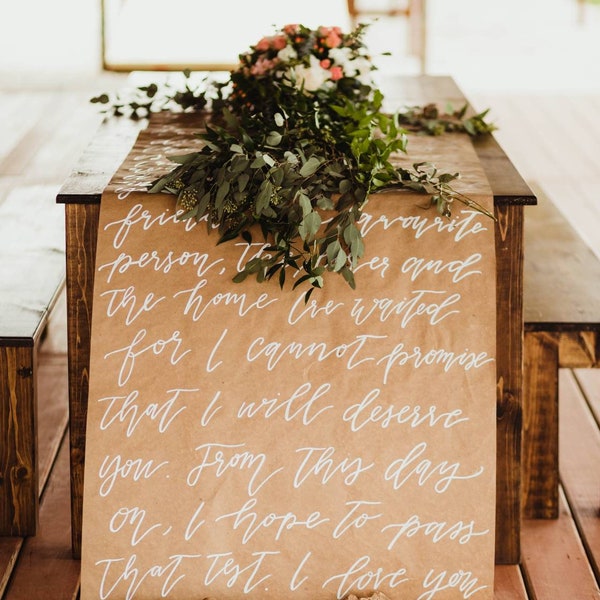 favourite
person, and
the home I've waited
for I cannot promise
that I will deserve
you. From this day
on, I hope to pass
that test. I love you